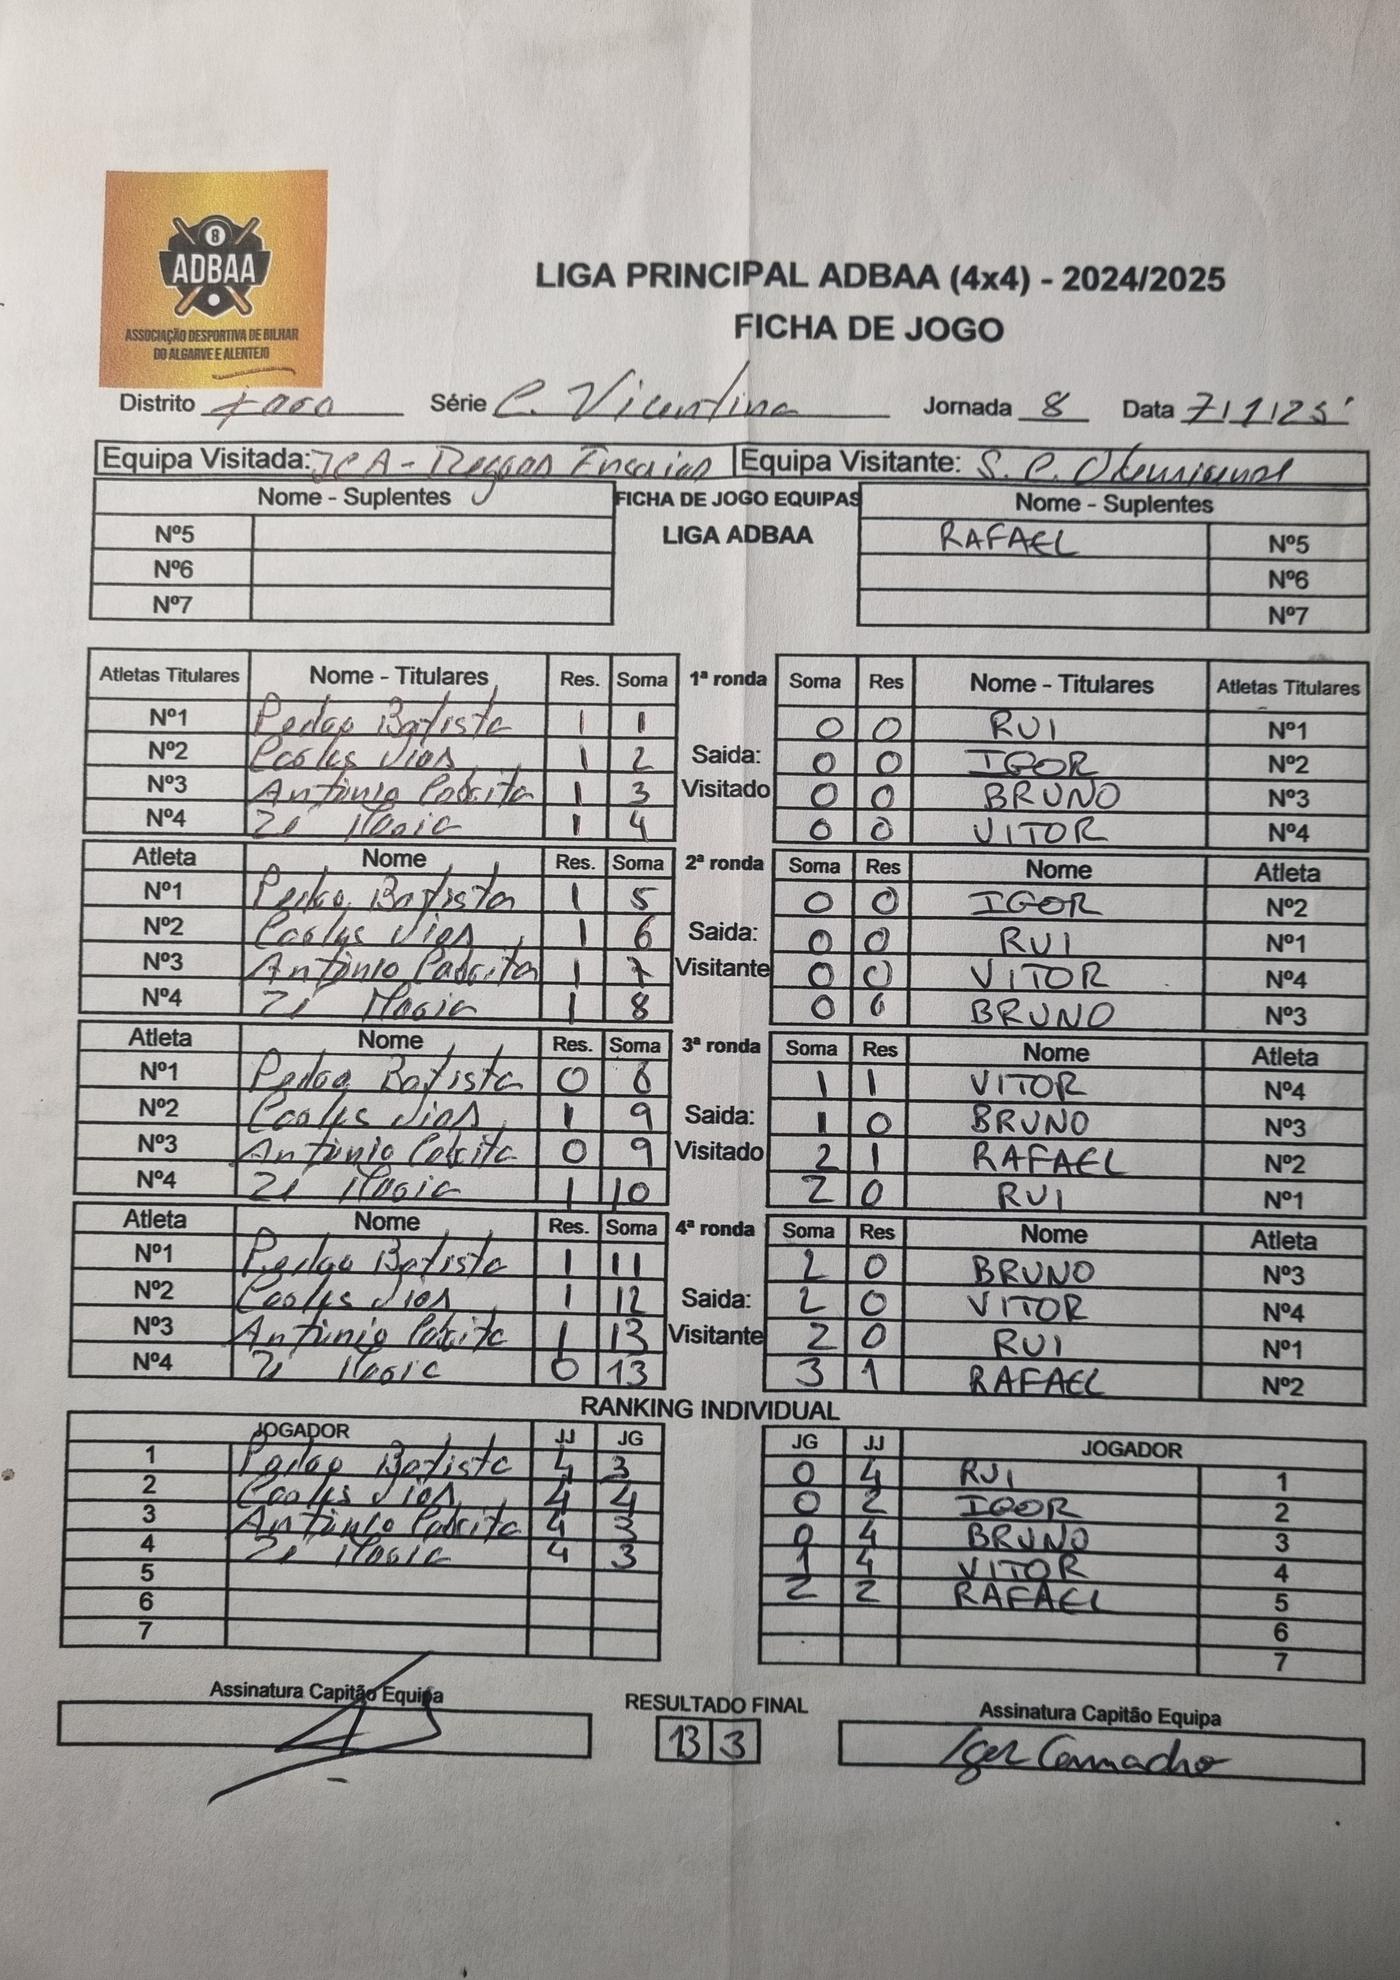 8
ADBAA
ASSOCIAÇÃO DESPORTIVA DE BILHAR
DO ALGARVE E ALENTEJO
LIGA PRINCIPAL ADBAA (4x4) - 2024/2025
FICHA DE JOGO
Distrito Faro Série C. Vicentina Jornada 8 Data 7/1/25
Equipa Visitada: JCA - Equipa Visitante: S. C.
Nome - Suplentes FICHA DE JOGO EQUIPAS Nome - Suplentes
Nº5 LIGA ADBAA RAFAEL Nº5
Nº6 Nº6
Nº7 Nº7
Atletas Titulares Nome - Titulares Res. Soma 1ª ronda Soma Res Nome - Titulares Atletas Titulares
Nº1 Pedro Batista 1 1 0 0 RUI Nº1
Nº2 Carlos Dias 1 2 Saida: 0 0 IGOR Nº2
Nº3 António Cabrita 1 3 Visitado 0 0 BRUNO Nº3
Nº4 Zé Magia 1 4 0 0 VITOR Nº4
Atleta Nome Res. Soma 2ª ronda Soma Res Nome Atleta
Nº1 Pedro Batista 1 5 0 0 IGOR Nº2
Nº2 Carlos Dias 1 6 Saida: 0 0 RUI Nº1
Nº3 António Cabrita 1 7 Visitante 0 0 VITOR Nº4
Nº4 Zé Magia 1 8 0 0 BRUNO Nº3
Atleta Nome Res. Soma 3ª ronda Soma Res Nome Atleta
Nº1 Pedro Batista 0 8 1 1 VITOR Nº4
Nº2 Carlos Dias 1 9 Saida: 1 0 BRUNO Nº3
Nº3 António Cabrita 0 9 Visitado 2 1 RAFAEL Nº2
Nº4 Zé Magia 1 10 2 0 RUI Nº1
Atleta Nome Res. Soma 4ª ronda Soma Res Nome Atleta
Nº1 Pedro Batista 1 11 2 0 BRUNO Nº3
Nº2 Carlos Dias 1 12 Saida: 2 0 VITOR Nº4
Nº3 António Cabrita 1 13 Visitante 2 0 RUI Nº1
Nº4 Zé Magia 0 13 3 1 RAFAEL Nº2
RANKING INDIVIDUAL
JOGADOR JJ JG JG JJ JOGADOR
1 Pedro Batista 4 3 0 4 RUI 1
2 Carlos Dias 4 4 0 2 IGOR 2
3 António Cabrita 4 3 0 4 BRUNO 3
4 Zé Magia 4 3 1 4 VITOR 4
5 2 2 RAFAEL 5
6 6
7 7
Assinatura Capitão Equipa RESULTADO FINAL Assinatura Capitão Equipa
13 3 Igor Camacho